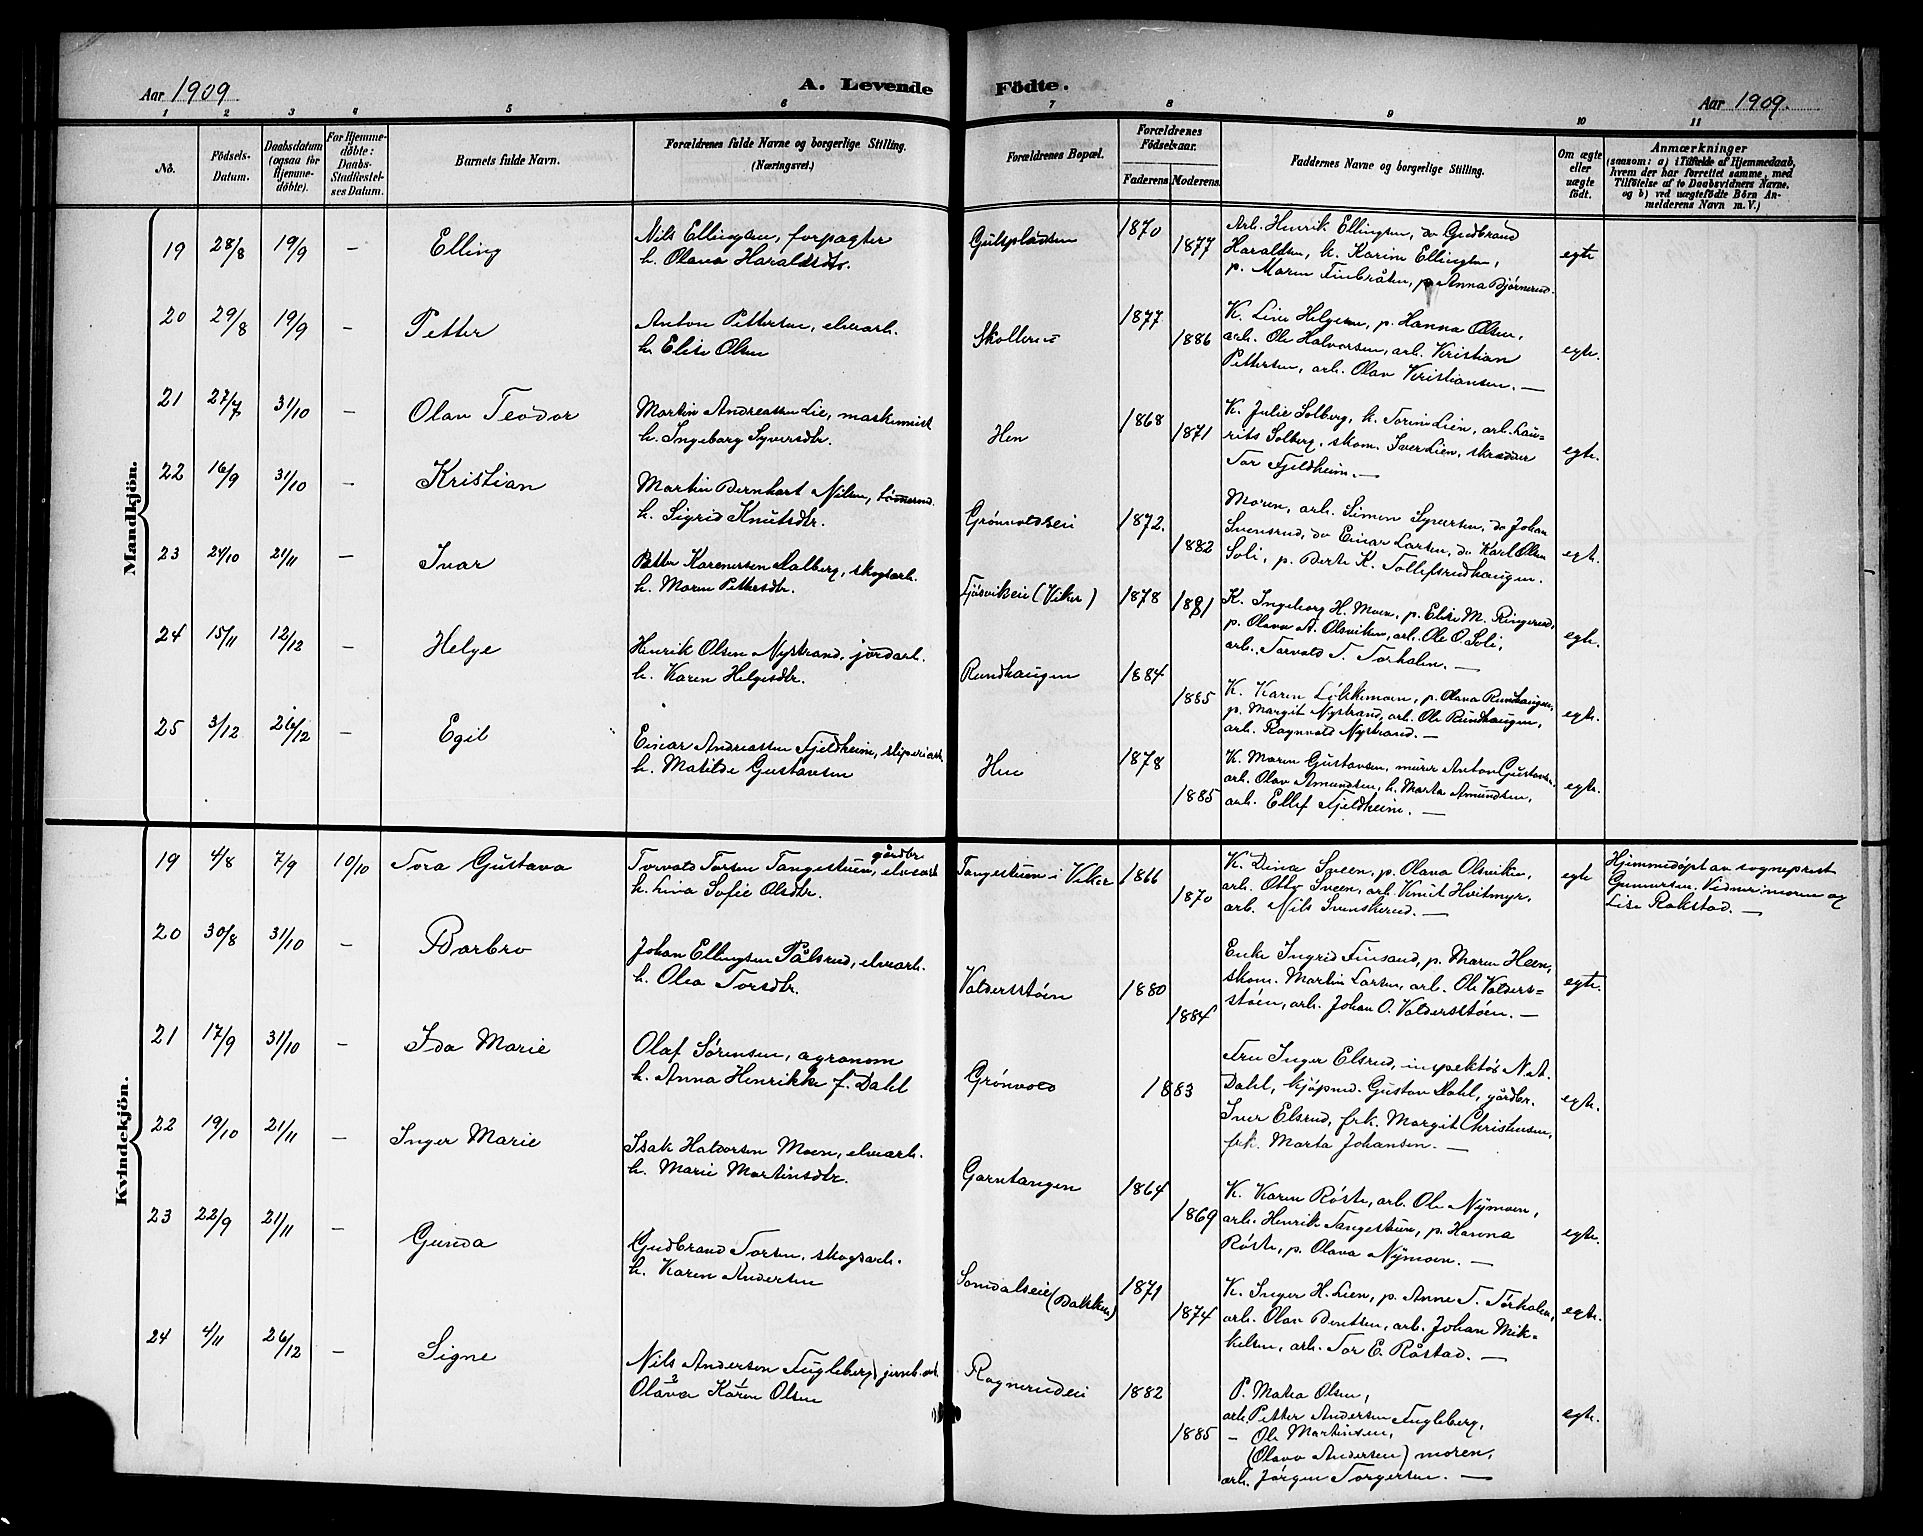 Aar 1909.
A. Levende Födte.
Aar 1909.
1 2 3 4 5 6 7 8 9 10 11
No.
Födsels-Datum.
Daabsdatum (ogsaa för Hjemme-döbte).
For Hjemme-döbte: Daabs-Stadfæstelses Datum.
Barnets fulde Navn.
Forældrenes fulde Navne og borgerlige Stilling. (Næringsvei.)
Forældrenes Bopæl.
Forældrenes Födselsaar.
Faderens. Moderens.
Faddernes Navne og borgerlige Stilling.
Om ægte eller uægte födt.
Anmærkninger
(saasom: a) i Tilfælde af Hjemmedaab,
hvem der har forrettet samme, med
Tilföielse af to Daabsvidners Navne.
og b) ved uægtefödte Börn An-
melderens Navn m. V.)
Mandkjön.
19 28/8 19/9 – Elling
Nils Ellingsen, forpagter
h. Olava Haraldsdtr.
Gulspladsen 1870 1877
Arb. Henrik Ellingsen, do Gudbrand
Haraldsen, k. Karine Ellingsen,
p. Maren Finbråten, p. Anna Bjørnerud.
egte
20 29/8 19/9 – Petter
Anton Pettersen, elvearb.
h. Elise Olsen
Skollerud 1877 1886
K. Live Helgesen, p. Hanna Olsen,
arb. Ole Halvorsen, arb. Kristian
Pettersen, arb. Olav Kristiansen. —
egte.
21 27/7 31/10 – Olav Teodor
Martin Andreassen Lie, maskinist
h. Ingeborg Syversdtr.
Hen 1868 1871
K. Julie Solberg, k. Torine Lien, arb. Lau-
rits Solberg, skom. Iver Lien, skrædder
Tor Fjeldheim. —
egte.
22 16/9 31/10 – Kristian
Martin Bernhart Nilsen, tømmerm.
h. Sigrid Knutsdtr.
Grønvoldseie 1872. 1882
Moren, arb. Simen Syversen, do Johan
Svensrud, do Einar Larsen, do Karl Olsen
Soli, p. Berte K. Tollefsrudhaugen.
egt.
23 24/10 21/11 – Ivar
Petter Karenersen Dalberg, skogsarb.
h. Maren Pettersdtr.
Tjøsvikeie (Viker) 1878 1881
K. Ingeborg H. Moen, p. Elise M. Ringerud,
p. Olava A. Olsviken, arb. Ole O. Soli,
arb. Torvald T. Torhalen. —
egte.
24 15/11 12/12 – Helge
Henrik Olsen Nystrand, jordarb.
h. Karen Helgesdtr.
Rundhaugen 1884 1885
K. Karen Løkkemoen, p. Olava Rundhaugen,
p. Margit Nystrand, arb. Ole Rundhaugen,
arb. Ragnvald Nystrand. —
egte.
25 3/12 26/12 – Egil
Einar Andreassen Fjeldheim, sliperiarb
h. Matilde Gustavsen
Hen 1878 1885
K. Maren Gustavsen, murer Anton Gustavsen,
arb. Olav Amundsen, k. Marta Amundsen,
arb. Ellef Fjeldheim. —
egte.
Kvindekjön.
19 4/8 7/9 10/10 Tora Gustava
gårdbr
Torvald Torsen Tangestuen, elvearb
h. Lina Sofie Olsdtr.
Tangestuen i Viker 1866 1870
K. Dina Sveen, p. Olava Olsviken,
arb. Otto Sveen, arb. Knut Hvitmyr,
arb. Nils Svenskerud. —
egte
Hjemmedøpt av sogneprest
Gunnersen. Vidner: moren og
Lise Rakstad. —
20 30/8 31/10 – Barbro
Johan Ellingsen Pålsrud, elvearb.
h. Olea Torsdtr.
Valdersstøen 1880 1884
Enke Ingrid Finsand, p. Maren Heen,
skom. Martin Larsen, arb. Ole Valders-
støen, arb. Johan O. Valdersstøen. —
egte.
21 17/9 31/10 – Ida Marie
Olaf Sørensen, agronom
h. Anna Henrikke f. Dahl
Grønvold 1883
Fru Inger Elsrud, inspektør N. A.
Dahl, kjøpmd. Gustav Dahl, gårdbr.
Iver Elsrud, frk. Margit Christensen,
frk. Marta Johansen. —
egte.
22 19/10 21/11 – Inger Marie
Isak Halvorsen Moen, elvearb.
h. Marie Martinsdtr.
Garntangen 1864 1869
K. Karen Røste, arb. Ole Nymoen,
arb. Henrik Tangestuen, p. Hanna
Røste, p. Olava Nymoen. —
egte.
23 22/9 21/11 – Gunda
Gudbrand Torsen, skogsarb.
h. Karen Andersen
Somdalseie (Bakken) 1871 1874
K. Inger H. Lien, p. Anne T. Torhalen,
arb. Olav Bentsen, arb. Johan Mik-
kelsen, arb. Tor E. Råstad. —
egte.
24 4/11 26/12 – Signe
Nils Andersen Fugleberg, jernb.arb
Olava Karen Olsen
Ragnerudeie 1882 1885
P. Matea Olsen,
arb. Petter Andersen Fugleberg,
– Ole Martinsen,
(Olava Andersen) moren,
arb. Jørgen Torgersen. —
egte.